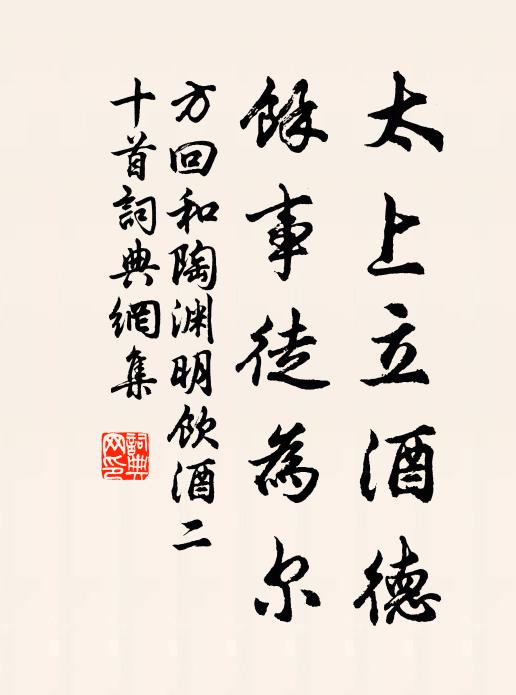 太上立酒德
餘事徒為尔
方回和陶渊明飲酒二
十首詞典網集
詞典
网印